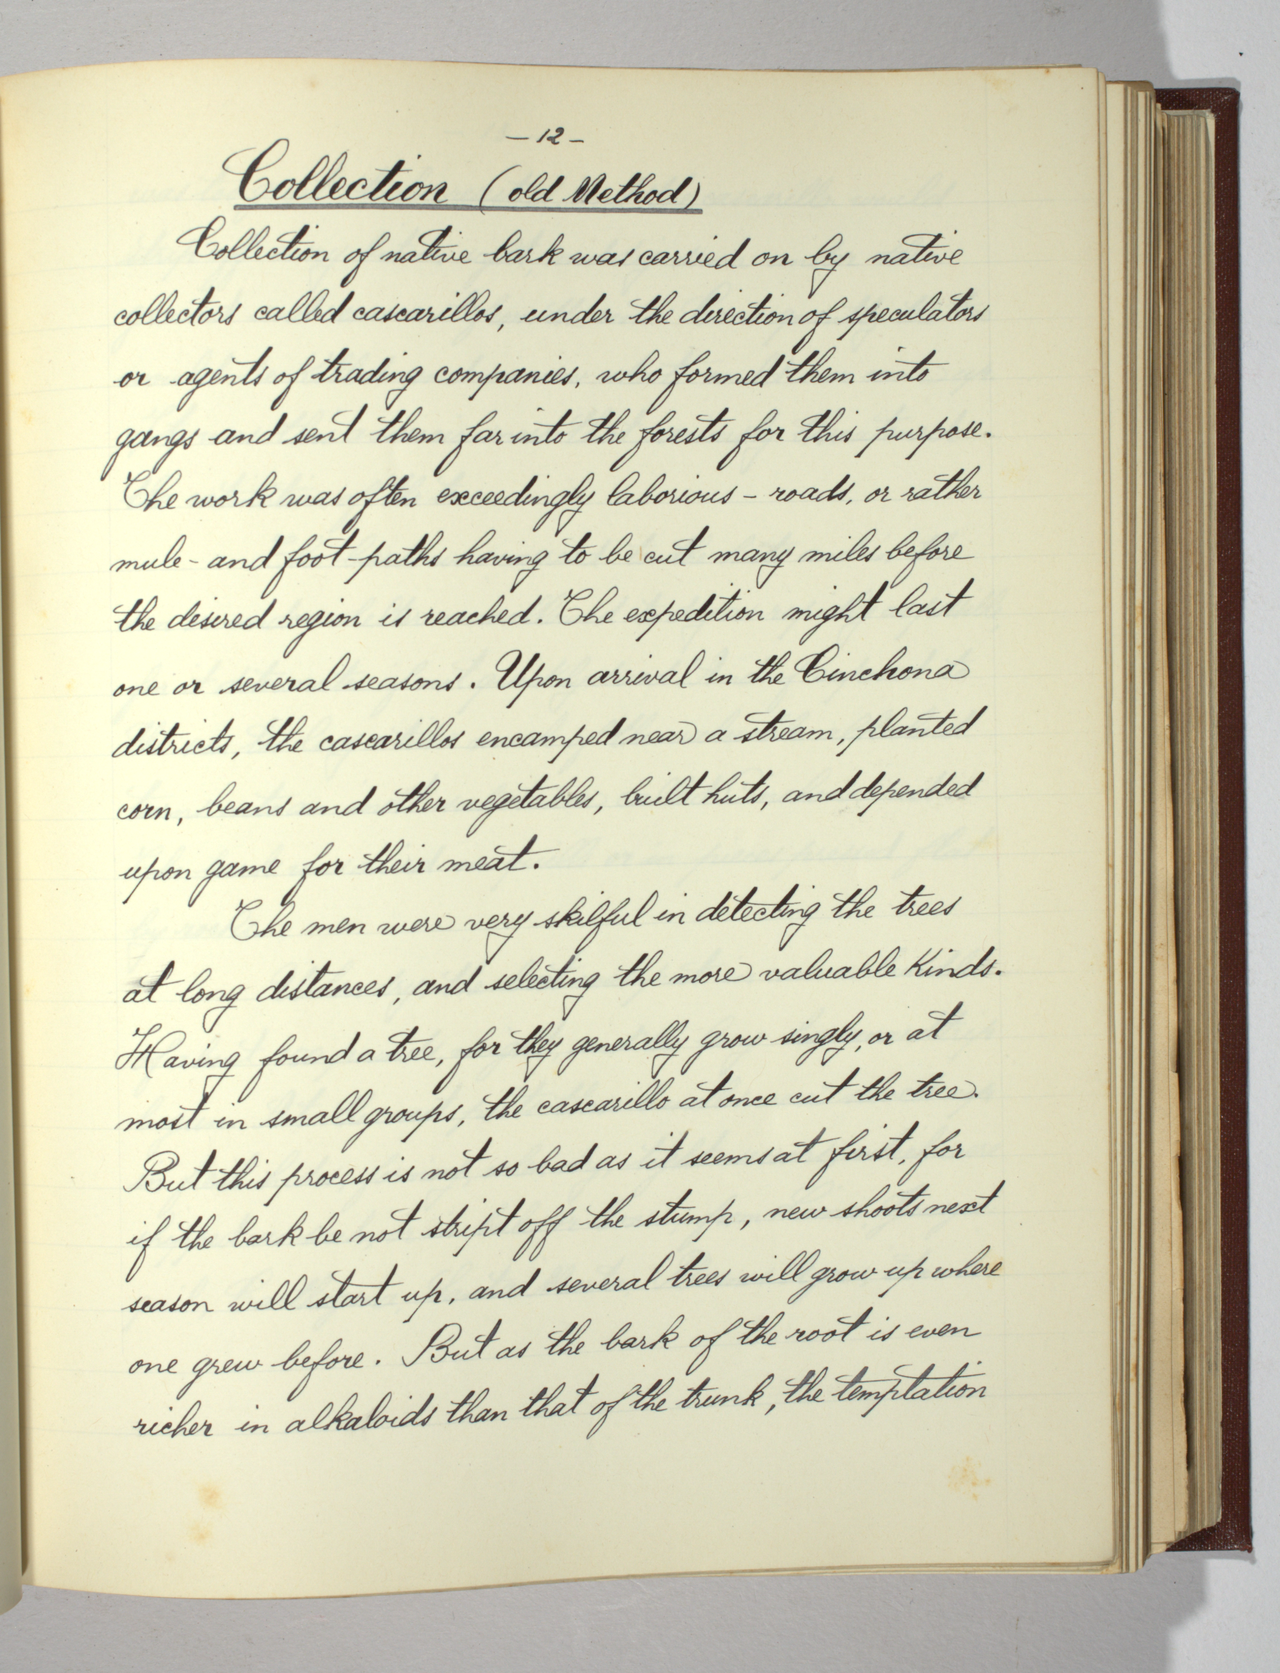 – 12 –
Collection (old Method)
Collection of native bark was carried on by native
collectors called cascarillos, under the direction of speculators
or agents of trading companies, who formed them into
gangs and sent them far into the forests for this purpose.
The work was often exceedingly laborious – roads, or rather
mule- and foot-paths having to be cut many miles before
the desired region is reached. The expedition might last
one or several seasons. Upon arrival in the Cinchona
districts, the cascarillos encamped near a stream, planted
corn, beans and other vegetables, built huts, and depended
upon game for their meat.
The men were very skilful in detecting the trees
at long distances, and selecting the more valuable Kinds.
Having found a tree, for they generally grow singly, or at
most in small groups, the cascarillo at once cut the tree.
But this process is not so bad as it seems at first, for
if the bark be not stript off the stump, new shoots next
season will start up, and several trees will grow up where
one grew before. But as the bark of the root is even
richer in alkaloids than that of the trunk, the temptation